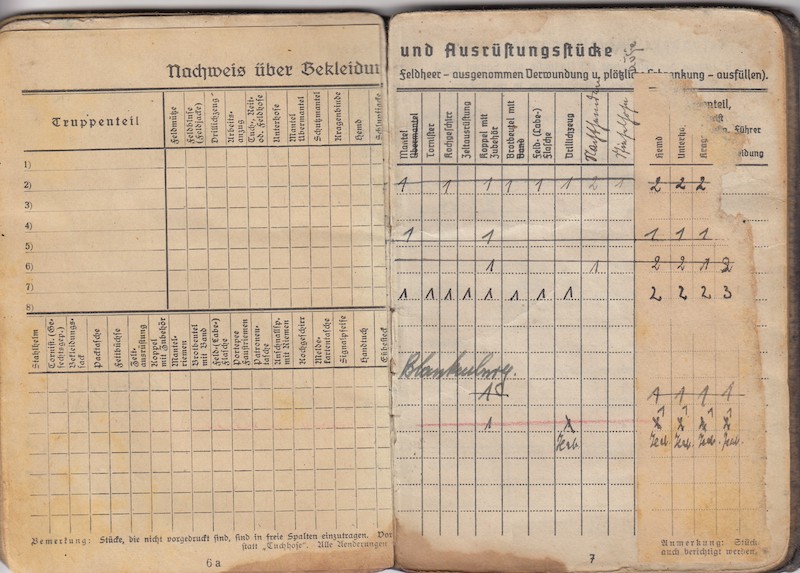 Nachweis über Bekleidu
Truppenteil
Feldmütze
Feldbluse (Feldjacke)
Drillichzeug
Arbeits-anzug
Tuch-, Reit- od. Feldhose
Unterhose
Mantel Übermantel
Schutzmantel
Kragenbinde
Hemd
1)
2)
3)
4)
5)
6)
7)
8)
Stahlhelm
Tornist. (Ge-fechtsgep.)
Bekleidungs-sack
Packtasche
Fettbüchse
Zelt-ausrüstung
Koppel mit Zubehör
Mantel-riemen
Brotbeutel mit Band
Feld-(Labe-) Flasche
Portepee Faustriemen
Patronen-tasche
Anschnallsp. mit Riemen
Kochgeschirr
Melde-kartentasche
Signalpfeife
Handtuch
Eßbesteck
Bemerkung: Stücke, die nicht vorgedruckt sind, sind in freie Spalten einzutragen. Vor
statt „Tuchhose“. Alle Aenderungen
6a
und Ausrüstungsstücke
Feldheer – ausgenommen Verwundung u. plötzliche Erkrankung – ausfüllen).
Mantel Übermantel
Tornister
Kochgeschirr
Zeltausrüstung
Koppel mit Zubehör
Brotbeutel mit Band
Feld-(Labe-) Flasche
Drillichzeug
Hemd
Unterh.
Krag
enteil,
Führer
dung
1 1 1 1 1 1 2 1 2 2 2
1 1 1 1 1
1 1 2 2 1 2
1 1 1 1 1 1 1 1 2 2 2 3
Blankenburg.
1 1 1 1 1
1
Zerb. Zerb. Zerb. Zerb. Zerb.
Anmerkung: Stück
auch berichtigt werden,
7